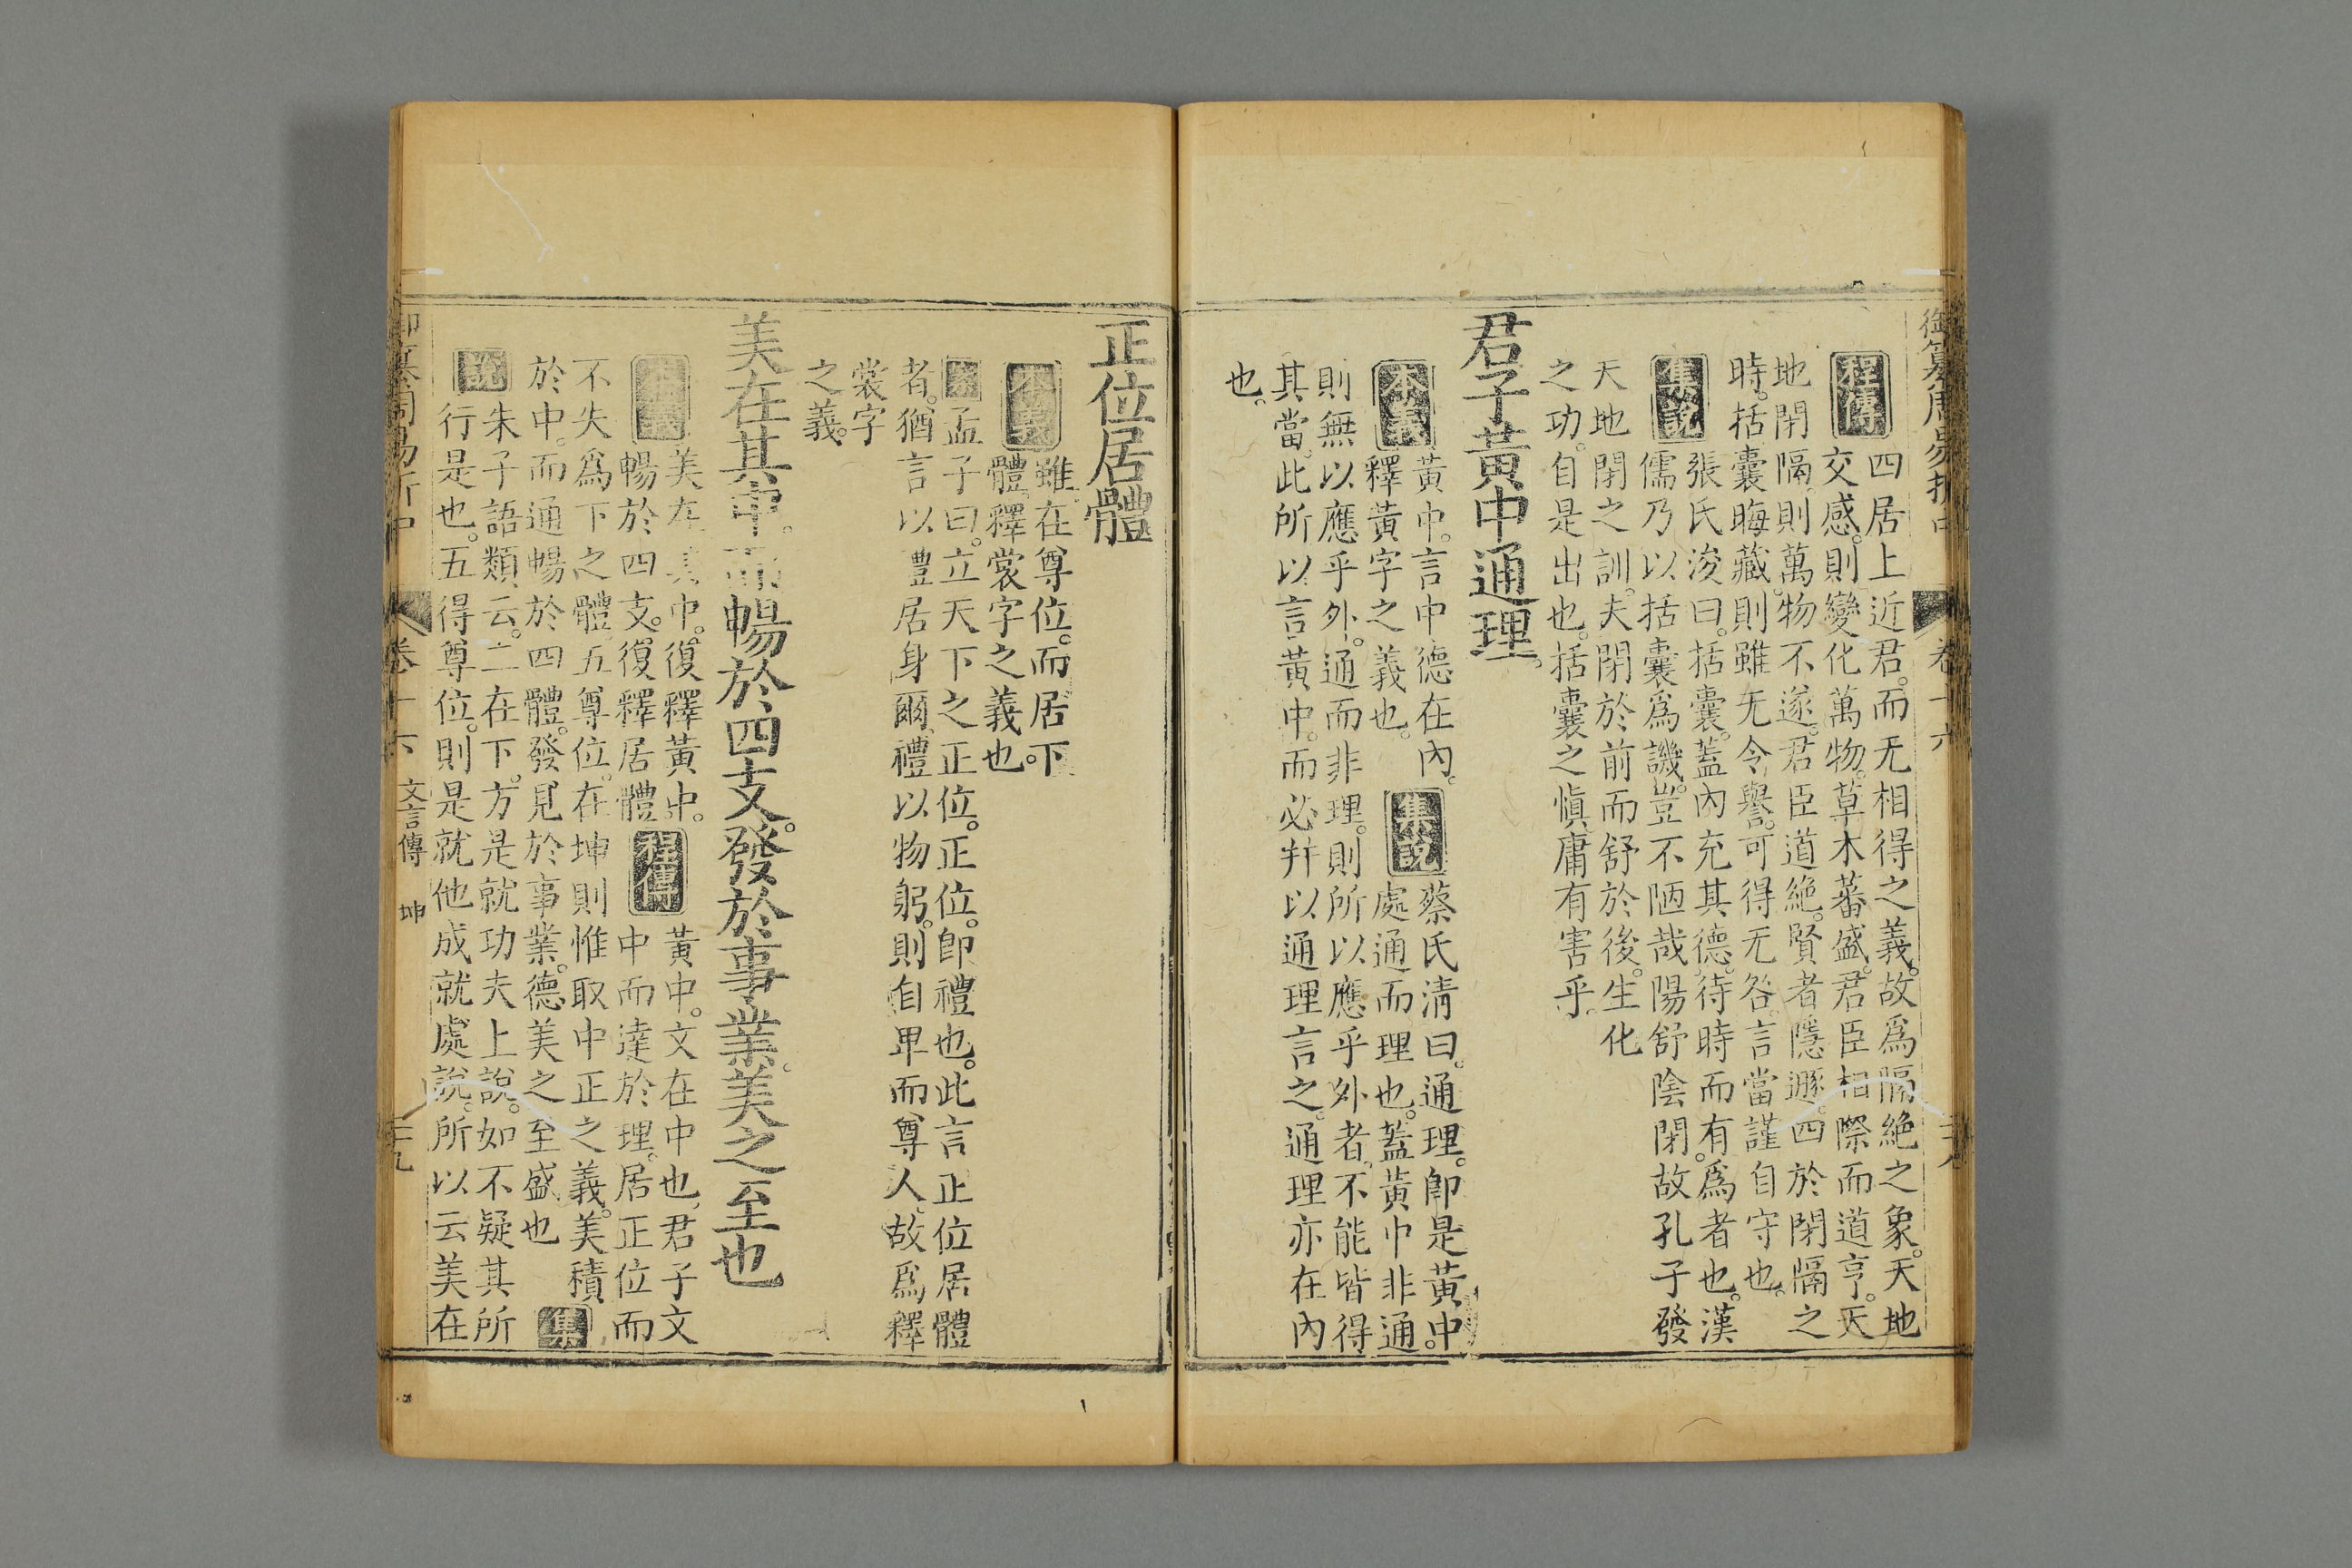 御纂周易折中 卷十六
程傳 四居上近君。而无相得之義。故爲隔絶之象。天地
交感。則變化萬物。草木蕃盛。君臣相際而道亨。天
地閉隔。則萬物不遂。君臣道絶。賢者隱遯。四於閉隔之
時。括囊晦藏。則雖无令譽。可得无咎。言當謹自守也。
集說 張氏浚曰。括囊。蓋內充其德。待時而有爲者也。漢
儒乃以括囊爲譏。豈不陋哉。陽舒陰閉。故孔子發
天地閉之訓。夫閉於前而舒於後。生化
之功。自是出也。括囊之愼。庸有害乎。
君子黃中通理。
本義 黃中。言中德在內。
釋黃字之義也。
集說 蔡氏淸曰。通理。卽是黃中。
處通而理也。蓋黃中非通。
則無以應乎外。通而非理。則所以應乎外者。不能皆得
其當。此所以言黃中。而必幷以通理言之。通理亦在內
也。
正位居體
本義 雖在尊位。而居下
體。釋裳字之義也。
孟子曰。立天下之正位。正位。卽禮也。此言正位居體
者。猶言以禮居身爾。禮以物躬。則自卑而尊人。故爲釋
裳字
之義。
美在其中。而暢於四支。發於事業。美之至也
本義 美在其中。復釋黃中。
暢於四支。復釋居體。
程傳 黃中。文在中也。君子文
中而達於理。居正位而
不失爲下之體。五尊位。在坤則惟取中正之義。美積
於中。而通暢於四體。發見於事業。德美之至盛也
集
說 朱子語類云。二在下。方是就功夫上說。如不疑其所
行是也。五得尊位。則是就他成就處說。所以云美在
卷十六 文言傳 坤